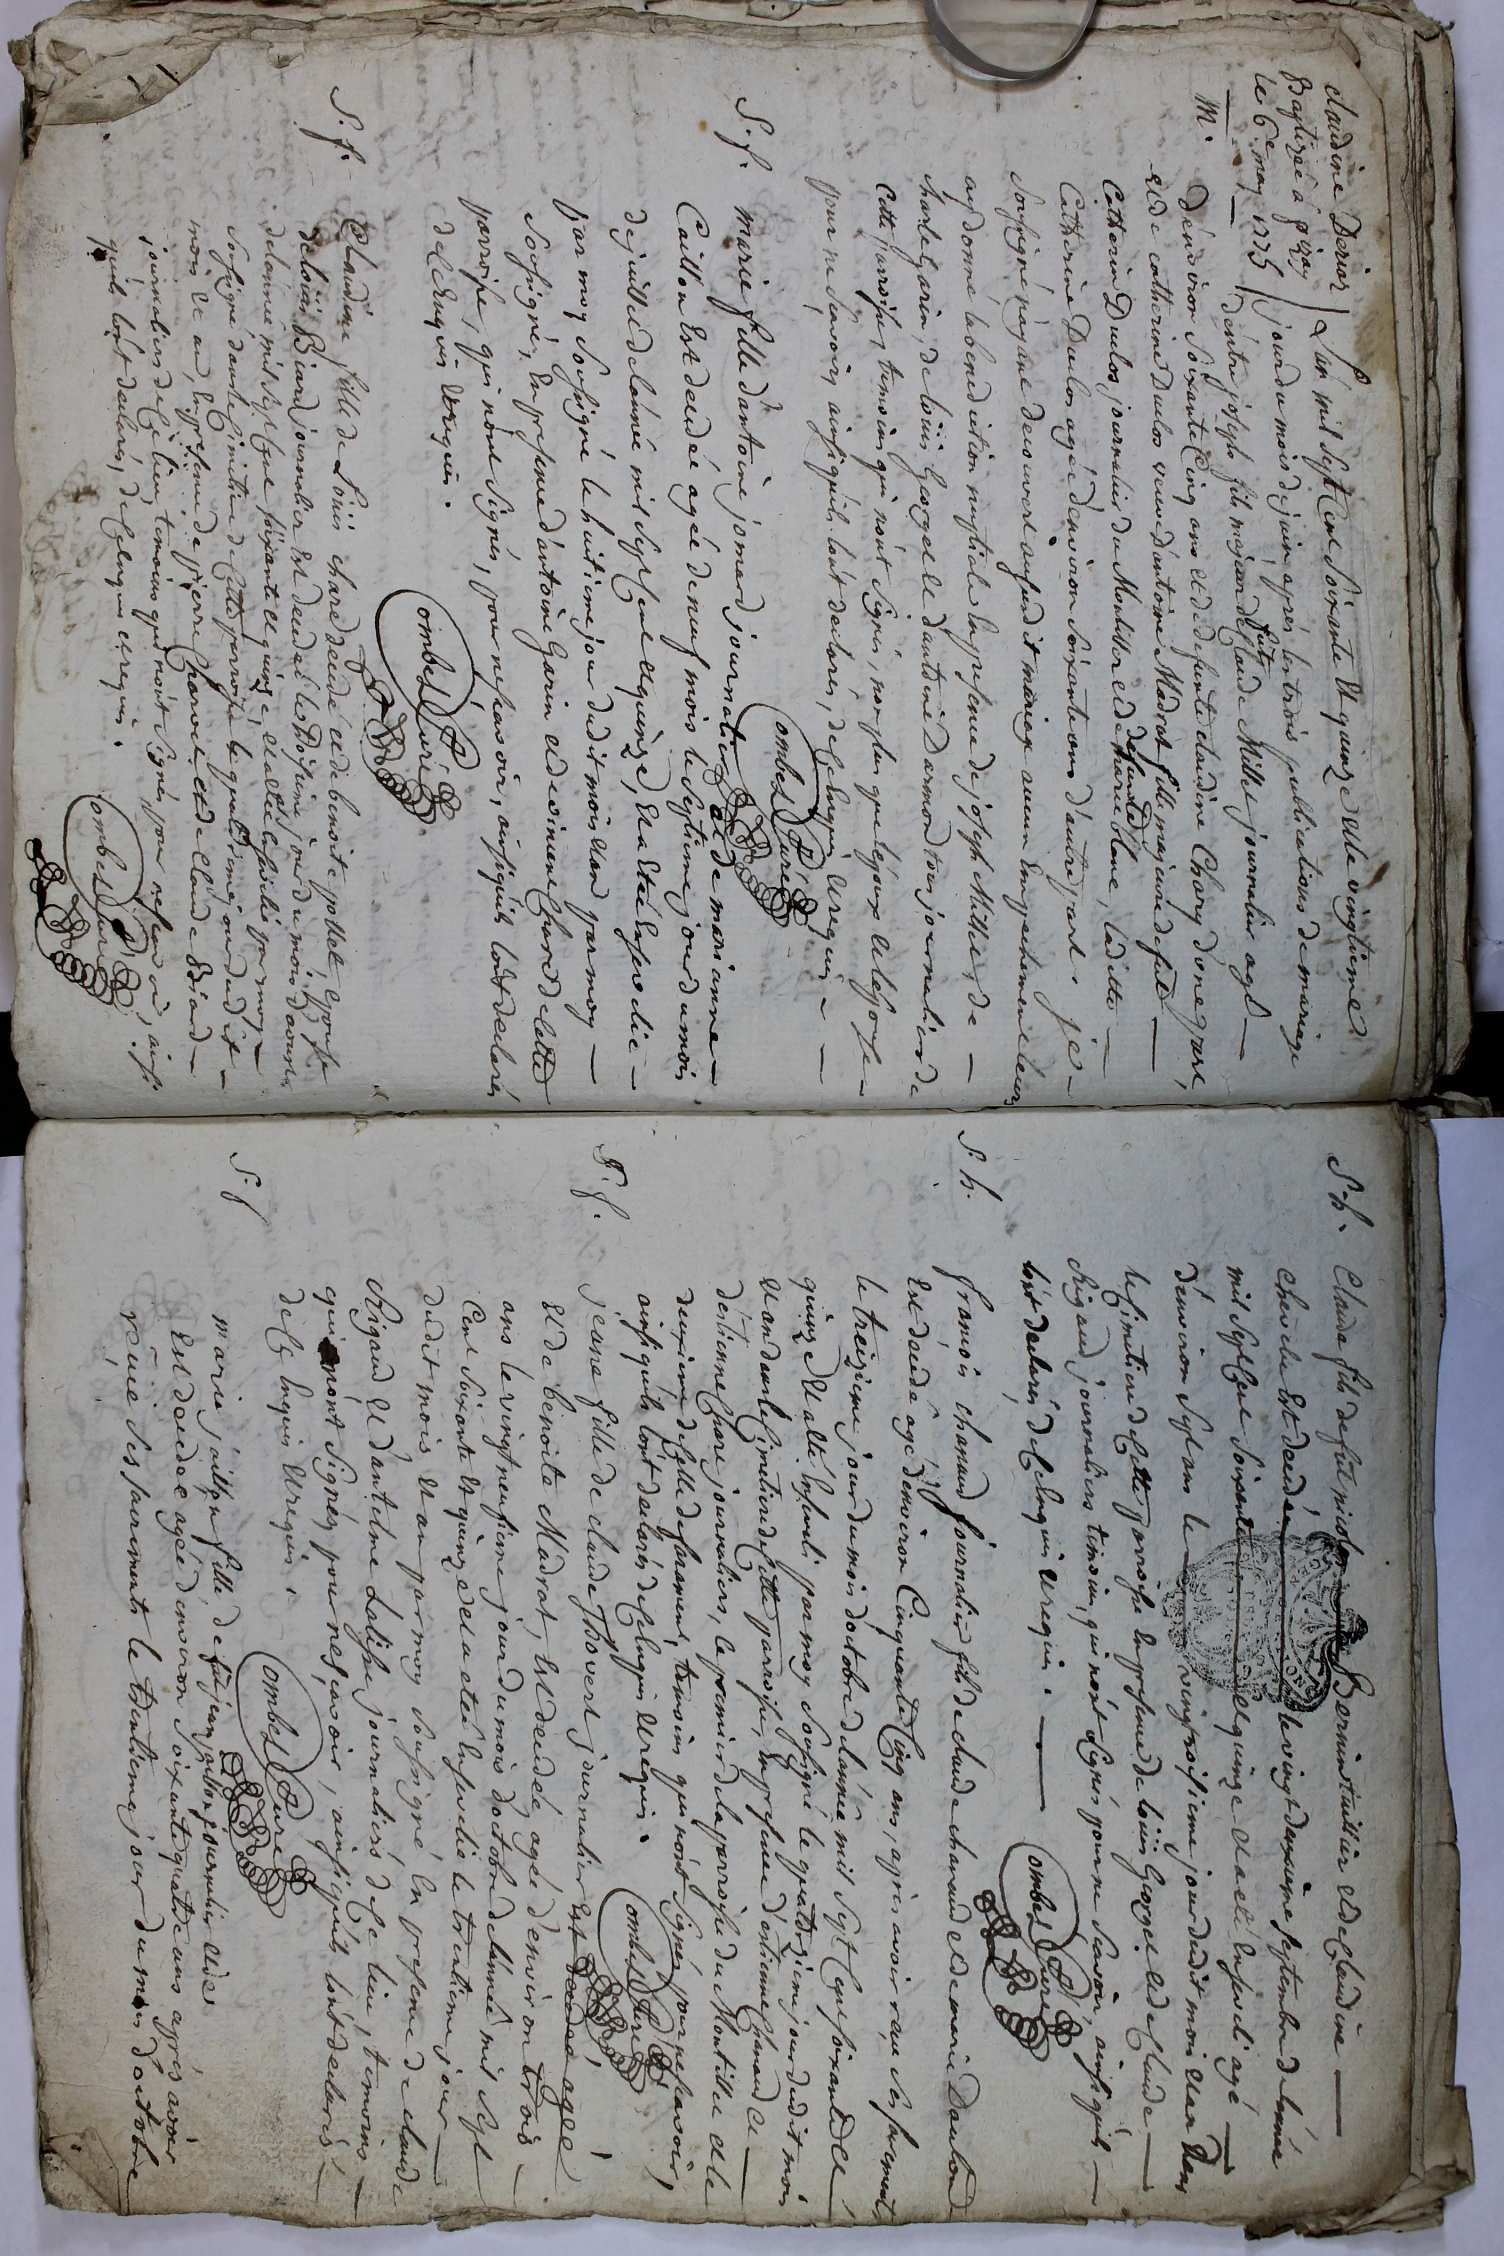 Claudine Perier
Baptizé à
le 6e may 1775
L'an mil sept cent soixante et quinze et le vingtieme
jour du mois de juin apres les trois publications de mariage
M.
d'entre joseph fils majeur de feut Claude Millet journalier agé
d'environ soixante cinq ans et de defunte claudine Chary d'une part,
et de catherine Duclos veuve d'antoine Madrat fille majeure de feut
Catherin Duclos journalier du Montillet et de defunte marie blanc, laditte
Catherine Duclos agée d'environ soixante ans d'autre part. je
soussigné n'ayant decouvert aucun empechement eleur
ay donné la benediction nuptiale en presence de joseph Millet, de
charle Garin, de loüis Georget et d'antoine Darmon tous journaliers de
cette parroisse, temoins qui n'ont signés, non plus que l'epoux et l'epouse
pour ne scavoir ainsi qu'ils l'ont declarés, de ce enquis et requis
Combet Curé
S. f.
marie fille d'antoine jomard journalier et de marianne
Caillon est decedée agée de neuf mois le septieme jour du mois
de juillet de l'année mil sept cent et quinze, et a eté ensevelie
par moy soussigné le huitieme jour dudit mois et an
soussigné, en presence d'antoine Garin et d'etienne Chare de cette
parroisse, qui n'ont signés, pour ne scavoir, ainsi qu'ils l'ont declarés
de ce enquis et requis.
Combet Curé
S. f.
Claudine fille de Loüis chare decedé et de benoite epouse
de loüis Biard journalier est decedée le troisieme jour du mois d'aoust
de l'année mil sept cent soixante et quinze, et a eté ensevelie par moy
soussigné dans le cimetiere de cette parroisse le quatrieme jour dudit
mois et an, en presence de pierre et de Claude Biard
journaliers de ce lieu, temoins qui n'ont signés pour ne scavoir, ainsi
qu'ils l'ont declarés, de ce enquis et requis.
Combet Curé
S. h.
Claude fils de feut nicolas tuillier et de Claudine
est decedé le vingt deuxieme septembre de l'année
mil sept cent soixante et quinze et a eté enseveli agé
d'environ sept ans le vingt troisieme jour dudit mois et an dans
le cimetiere de cette parroisse en presence de loüis Georget et de Claude
Rigaud journaliers temoins, qui n'ont signés pour ne scavoir, ainsi qu'ils
l'ont declarés de ce enquis et requis.
Combet Curé
S. h.
francois chanaud journalier fils de claude chanaud et de marie
est decedé agé d'environ Cinquante cinq ans, apres avoir reçu ses sacrements
le treizieme jour du mois d'octobre de l'année mil sept cent soixante et
quinze et a eté enseveli par moy soussigné le quatorzieme jour dudit mois
et an dans le cimetiere de cette parroisse, en presence d'etienne chanaud et
d'etienne Chare journaliers, le premier de la parroisse du Montillet et le
deuxieme de celle de temoins qui n'ont signés pour ne scavoir,
ainsi qu'ils l'ont declarés de ce enquis et requis.
Combet Curé
S. f.
jeanne fille de claude Thovert journalier est decedée agée
et de benoite Madrat, est decedée agée d'environ trois
ans le vingt neufieme jour du mois d'octobre de l'année mil sept
cent soixante et quinze et a eté ensevelie le trentieme jour
dudit mois et an par moy soussigné en presence de claude
Rigaud et d'antoine journaliers de ce lieu, temoins
qui n'ont signés pour ne scavoir, ainsi qu'ils l'ont declarés
de ce enquis et requis.
Combet Curé
S. f
marie fille de feut jean journalier et de
est decedée agée d'environ soixante quatre ans apres avoir
reçuë ses sacrements le trentieme jour du mois d'octobre